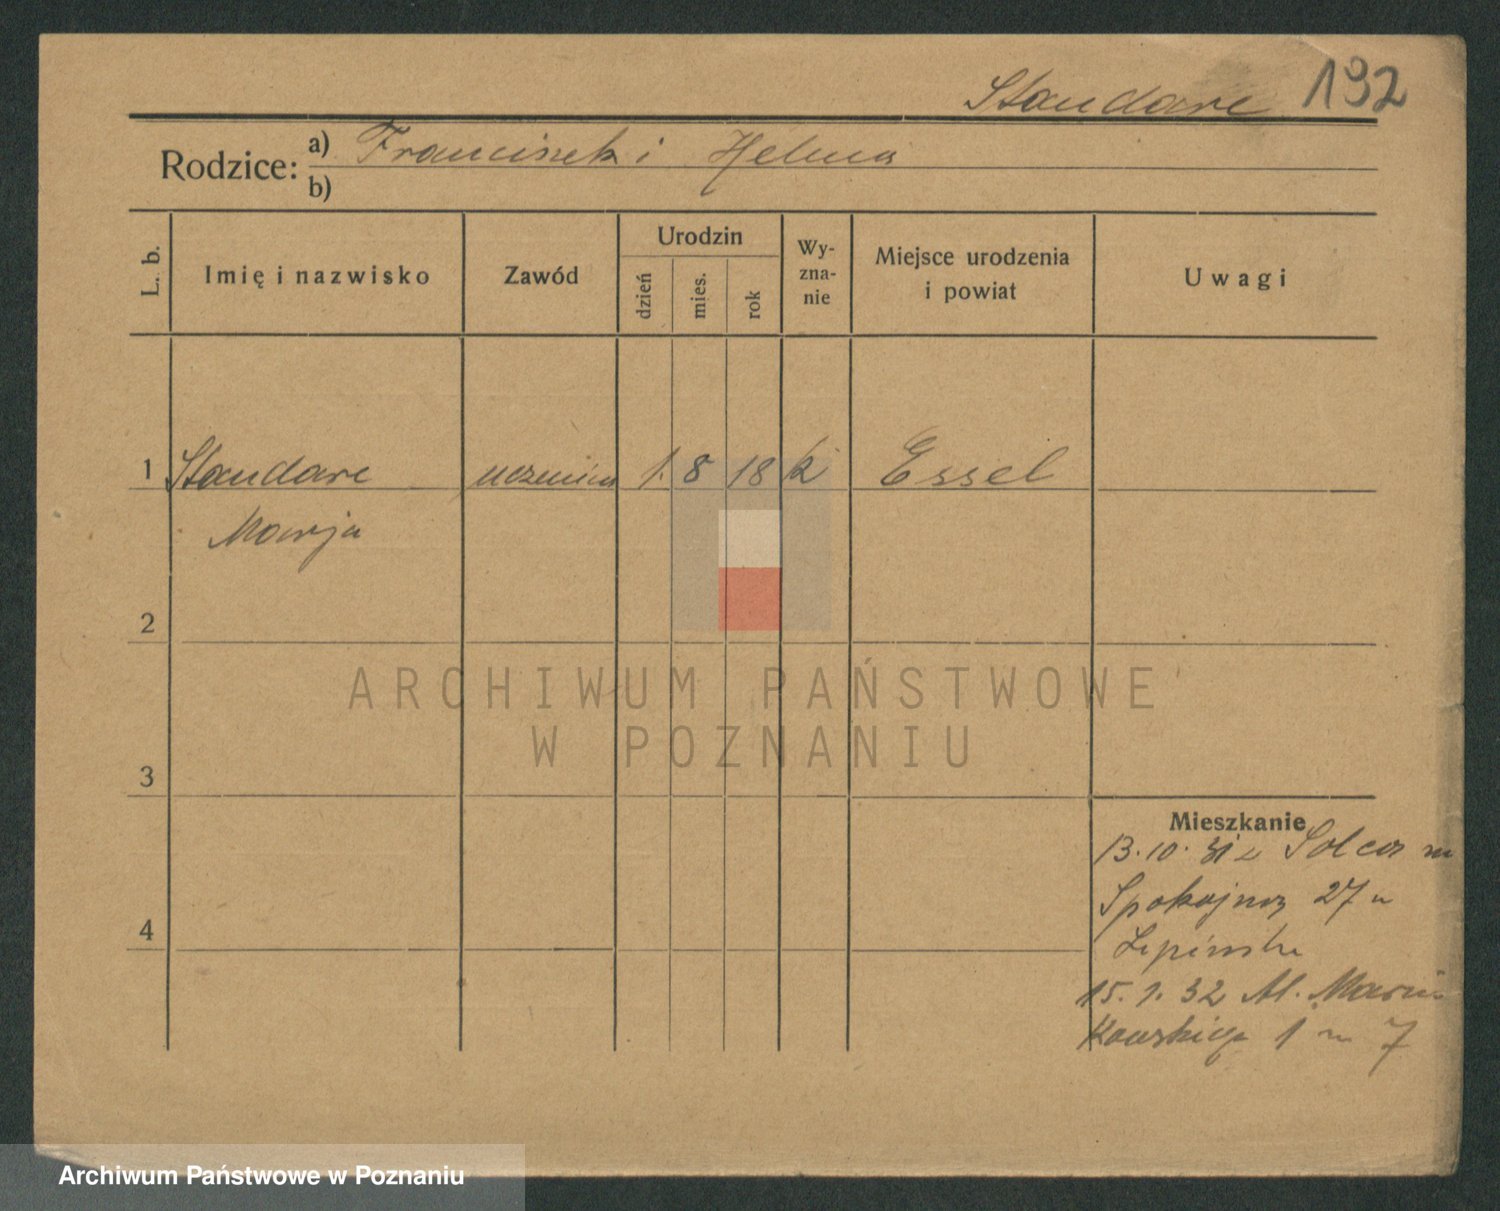 Standare 192
Rodzice: a) Franciszek i Helena
b)
L. b. Imię i nazwisko Zawód Urodzin dzień mies. rok Wy-zna-nie Miejsce urodzenia i powiat Uwagi
1 Standare uczenica 1. 8 18 k Essel
Marja
2
3
4
Mieszkanie
13.10.31 z Solca
Spokojna 27 u
15.1.32 Al. Marcin
kowskiego 1 m 7
ARCHIWUM PAŃSTWOWE
W POZNANIU
Archiwum Państwowe w Poznaniu